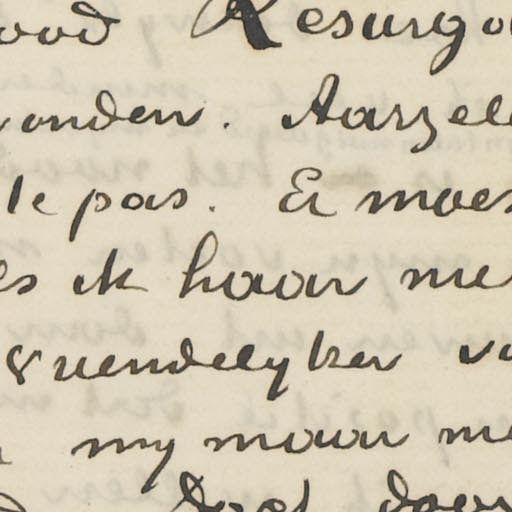 ood Resurgo
onden. Aarzele
te pas. Er moes
es ik haar me
vriendelyker va
my maar me
doet door